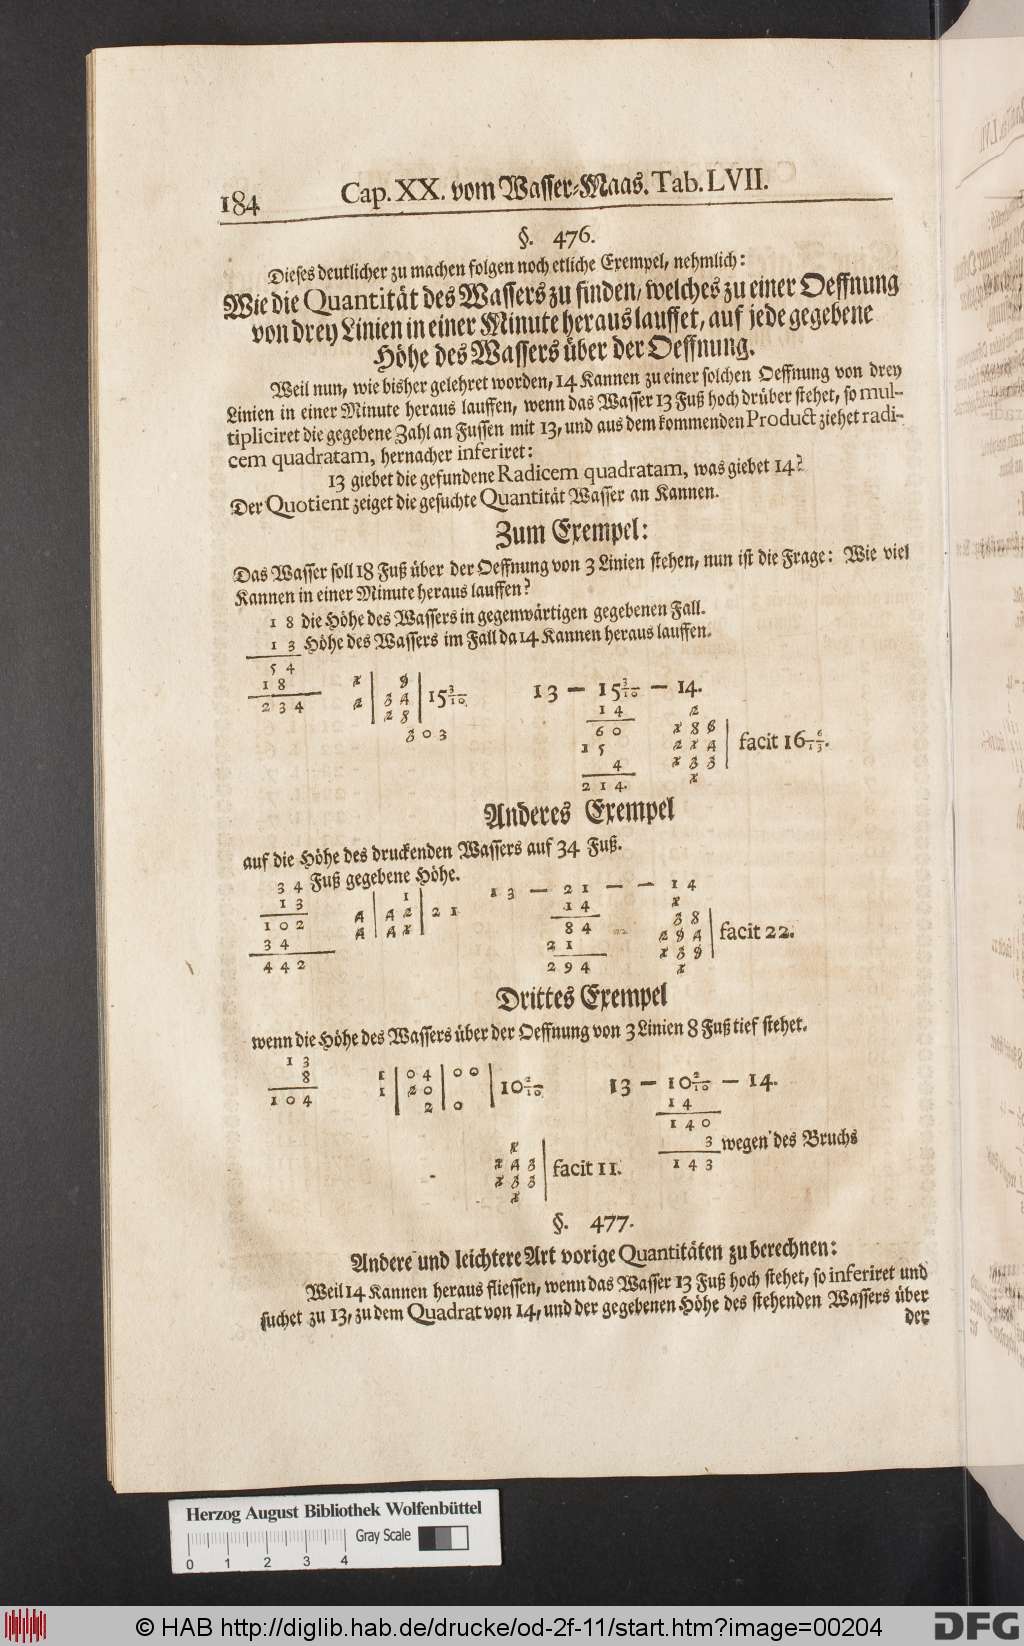 184 Cap. XX. vom Wasser-Maas. Tab. LVII.
§. 476.
Dieses deutlicher zu machen folgen noch etliche Exempel, nehmlich:
Wie die Quantität des Wassers zu finden, welches zu einer Oeffnung
von drey Linien in einer Minute heraus lauffet, auf jede gegebene
Höhe des Wassers über der Oeffnung.
Weil nun, wie bisher gelehret worden, 14 Kannen zu einer solchen Oeffnung von drey
Linien in einer Minute heraus lauffen, wenn das Wasser 13 Fuß hoch drüber stehet, so mul-
tipliciret die gegebene Zahl an Fussen mit 13, und aus dem kommenden Product ziehet radi-
cem quadratam, hernacher inferiret:
13 giebet die gefundene Radicem quadratam, was giebet 14?
Der Quotient zeiget die gesuchte Quantität Wasser an Kannen.
Zum Exempel:
Das Wasser soll 18 Fuß über der Oeffnung von 3 Linien stehen, nun ist die Frage: Wie viel
Kannen in einer Minute heraus lauffen?
1 8 die Höhe des Wassers in gegenwärtigen gegebenen Fall.
1 3 Höhe des Wassers im Fall da 14 Kannen heraus lauffen.
5 4
1 8
2 3 4
1 | 9
2 | 3 4 | 15 3/10.
2 8
3 0 3
13 — 15 3/10 — 14.
1 4
6 0
1 5
4
2 1 4.
2
1 8 6
2 1 4 | facit 16 6/13.
1 3 3
1
Anderes Exempel
auf die Höhe des druckenden Wassers auf 34 Fuß.
3 4 Fuß gegebene Höhe.
1 3
1 0 2
3 4
4 4 2
1
4 | 4 2 | 2 1
4 | 4 1
1 3 — 2 1 — — 1 4
1 4
8 4
2 1
2 9 4
1
3 8
2 9 4 | facit 22.
1 3 9
1
Drittes Exempel
wenn die Höhe des Wassers über der Oeffnung von 3 Linien 8 Fuß tief stehet.
1 3
8
1 0 4
1 | 0 4 | 0 0 | 10 2/10.
1 | 2 0
2 | 0
13 — 10 2/10 — 14.
1 4
1 4 0
3 wegen des Bruchs
1 4 3
1
1 4 3 | facit 11.
1 3 3
1
§. 477.
Andere und leichtere Art vorige Quantitäten zu berechnen:
Weil 14 Kannen heraus fliessen, wenn das Wasser 13 Fuß hoch stehet, so inferiret und
suchet zu 13, zu dem Quadrat von 14, und der gegebenen Höhe des stehenden Wassers über
der
Herzog August Bibliothek Wolfenbüttel
Gray Scale
0 1 2 3 4
© HAB http://diglib.hab.de/drucke/od-2f-11/start.htm?image=00204
DFG